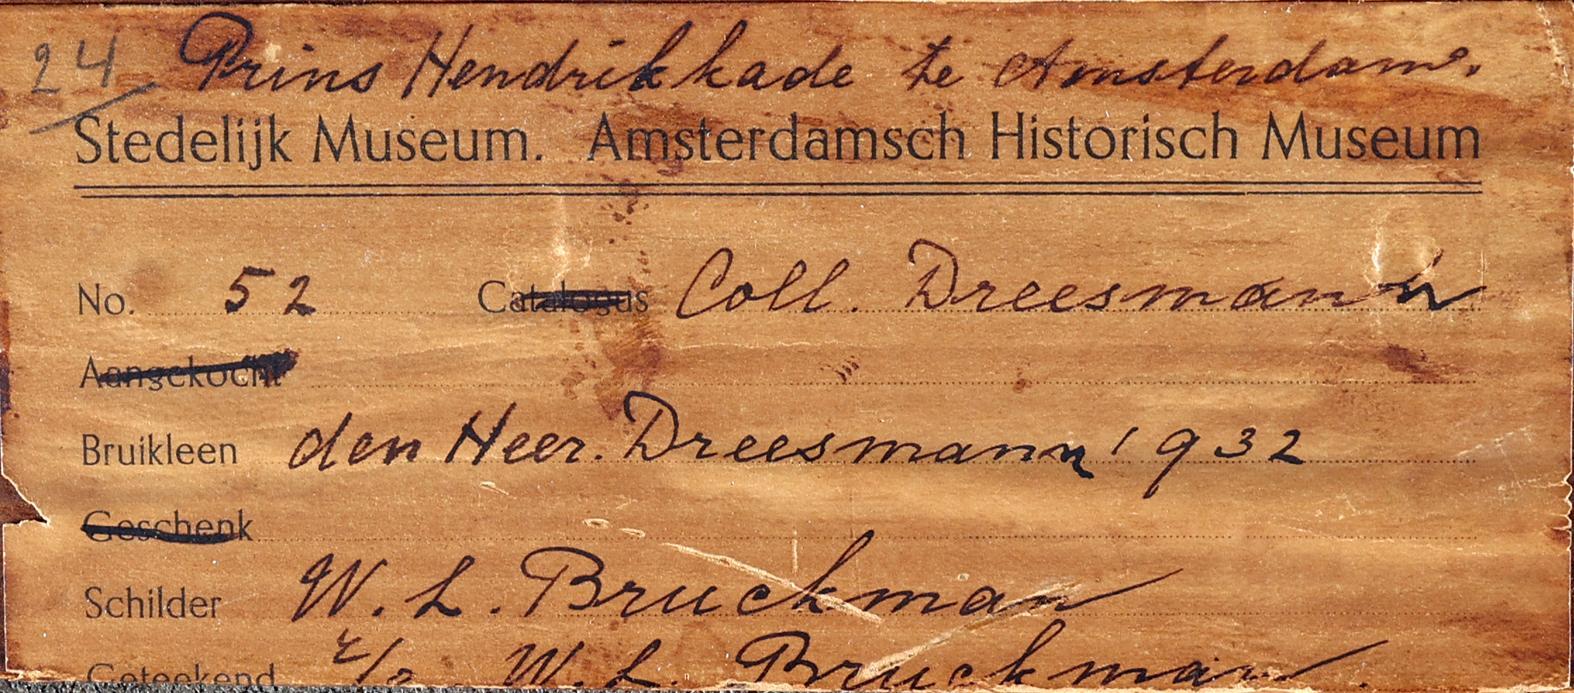 24 Prins Hendrikkade te Amsterdam.
Stedelijk Museum. Amsterdamsch Historisch Museum
No. 52 Catalogus Coll. Dreesmann
Aangekocht
Bruikleen den Heer. Dreesmann 1932
Geschenk
Schilder W. L. Bruckman
Geteekend W. L. Bruckman.